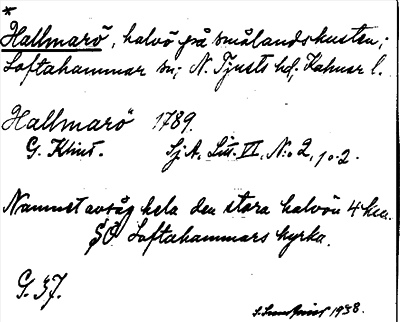 *
Hallmarö, halvö på smålandskusten;
Loftahammar sn; N. Tjusts hd; Kalmar l.
Hallmarö 1789.
G. Klint. Sj. A. Litt. VI, N:o 2, 1 o. 2.
Namnet avsåg hela den stora halvön 4 km.
SO Loftahammars kyrka.
G. 37.
1938.